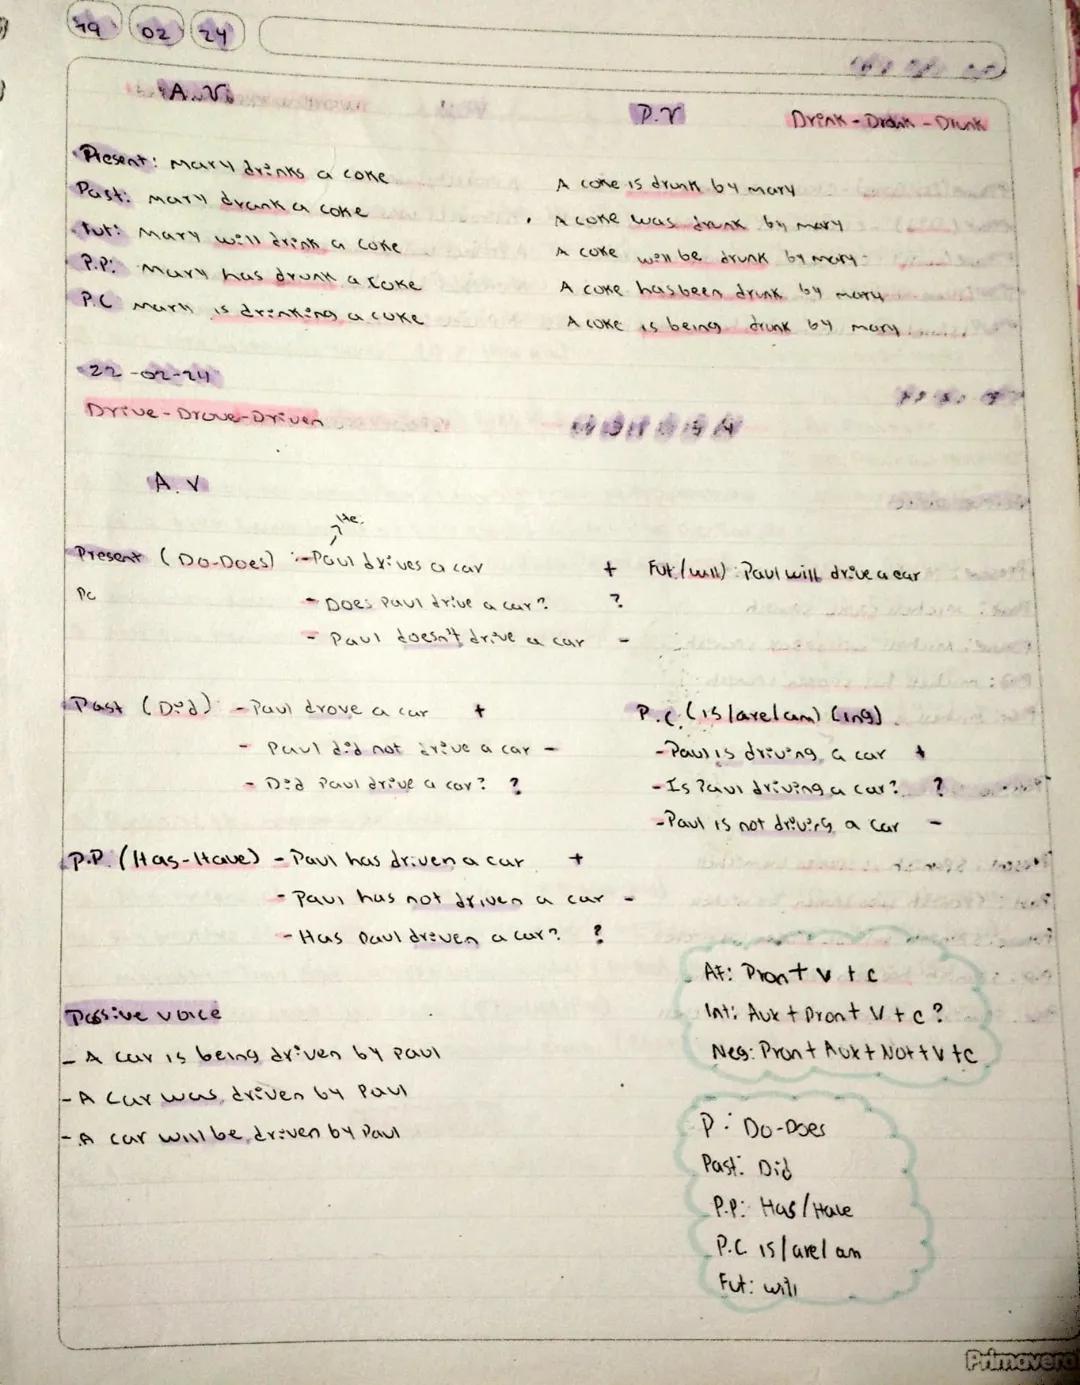 19 02 24
A.V.
P.V
Drink - Drank - Drunk
Present: Mary drinks a coke
A coke is drunk by mary
Past: mary drank a coke
A coke was drunk by mary
Fut: Mary will drink a coke
A coke will be drunk by mary
P.P: Mary has drunk a coke
A coke has been drunk by mary
P.C Mary is drinking a coke
A coke is being drunk by mary
22-02-24
Drive - Drove - Driven
A.V
He.
Present (Do-Does) :-Paul drives a car +
Pc
- Does Paul drive a car? ?
- Paul doesn't drive a car -
Fut (will): Paul will drive a car
Past (Did) - Paul drove a car +
- Paul did not drive a car -
- Did Paul drive a car? ?
P.C. (is/are/am) (ing)
- Paul is driving a car +
- Is Paul driving a car? ?
- Paul is not driving a car -
P.P. (Has-Have) - Paul has driven a car +
- Paul has not driven a car -
- Has Paul driven a car? ?
Af: Pron + V + c
Int: Aux + Pron + V + c?
Neg: Pron + Aux + Not + V + c
Passive voice
- A car is being driven by Paul
- A car was driven by Paul
- A car will be driven by Paul
P: Do-Does
Past: Did
P.P: Has/Have
P.C is/are/am
Fut: will
Primavera